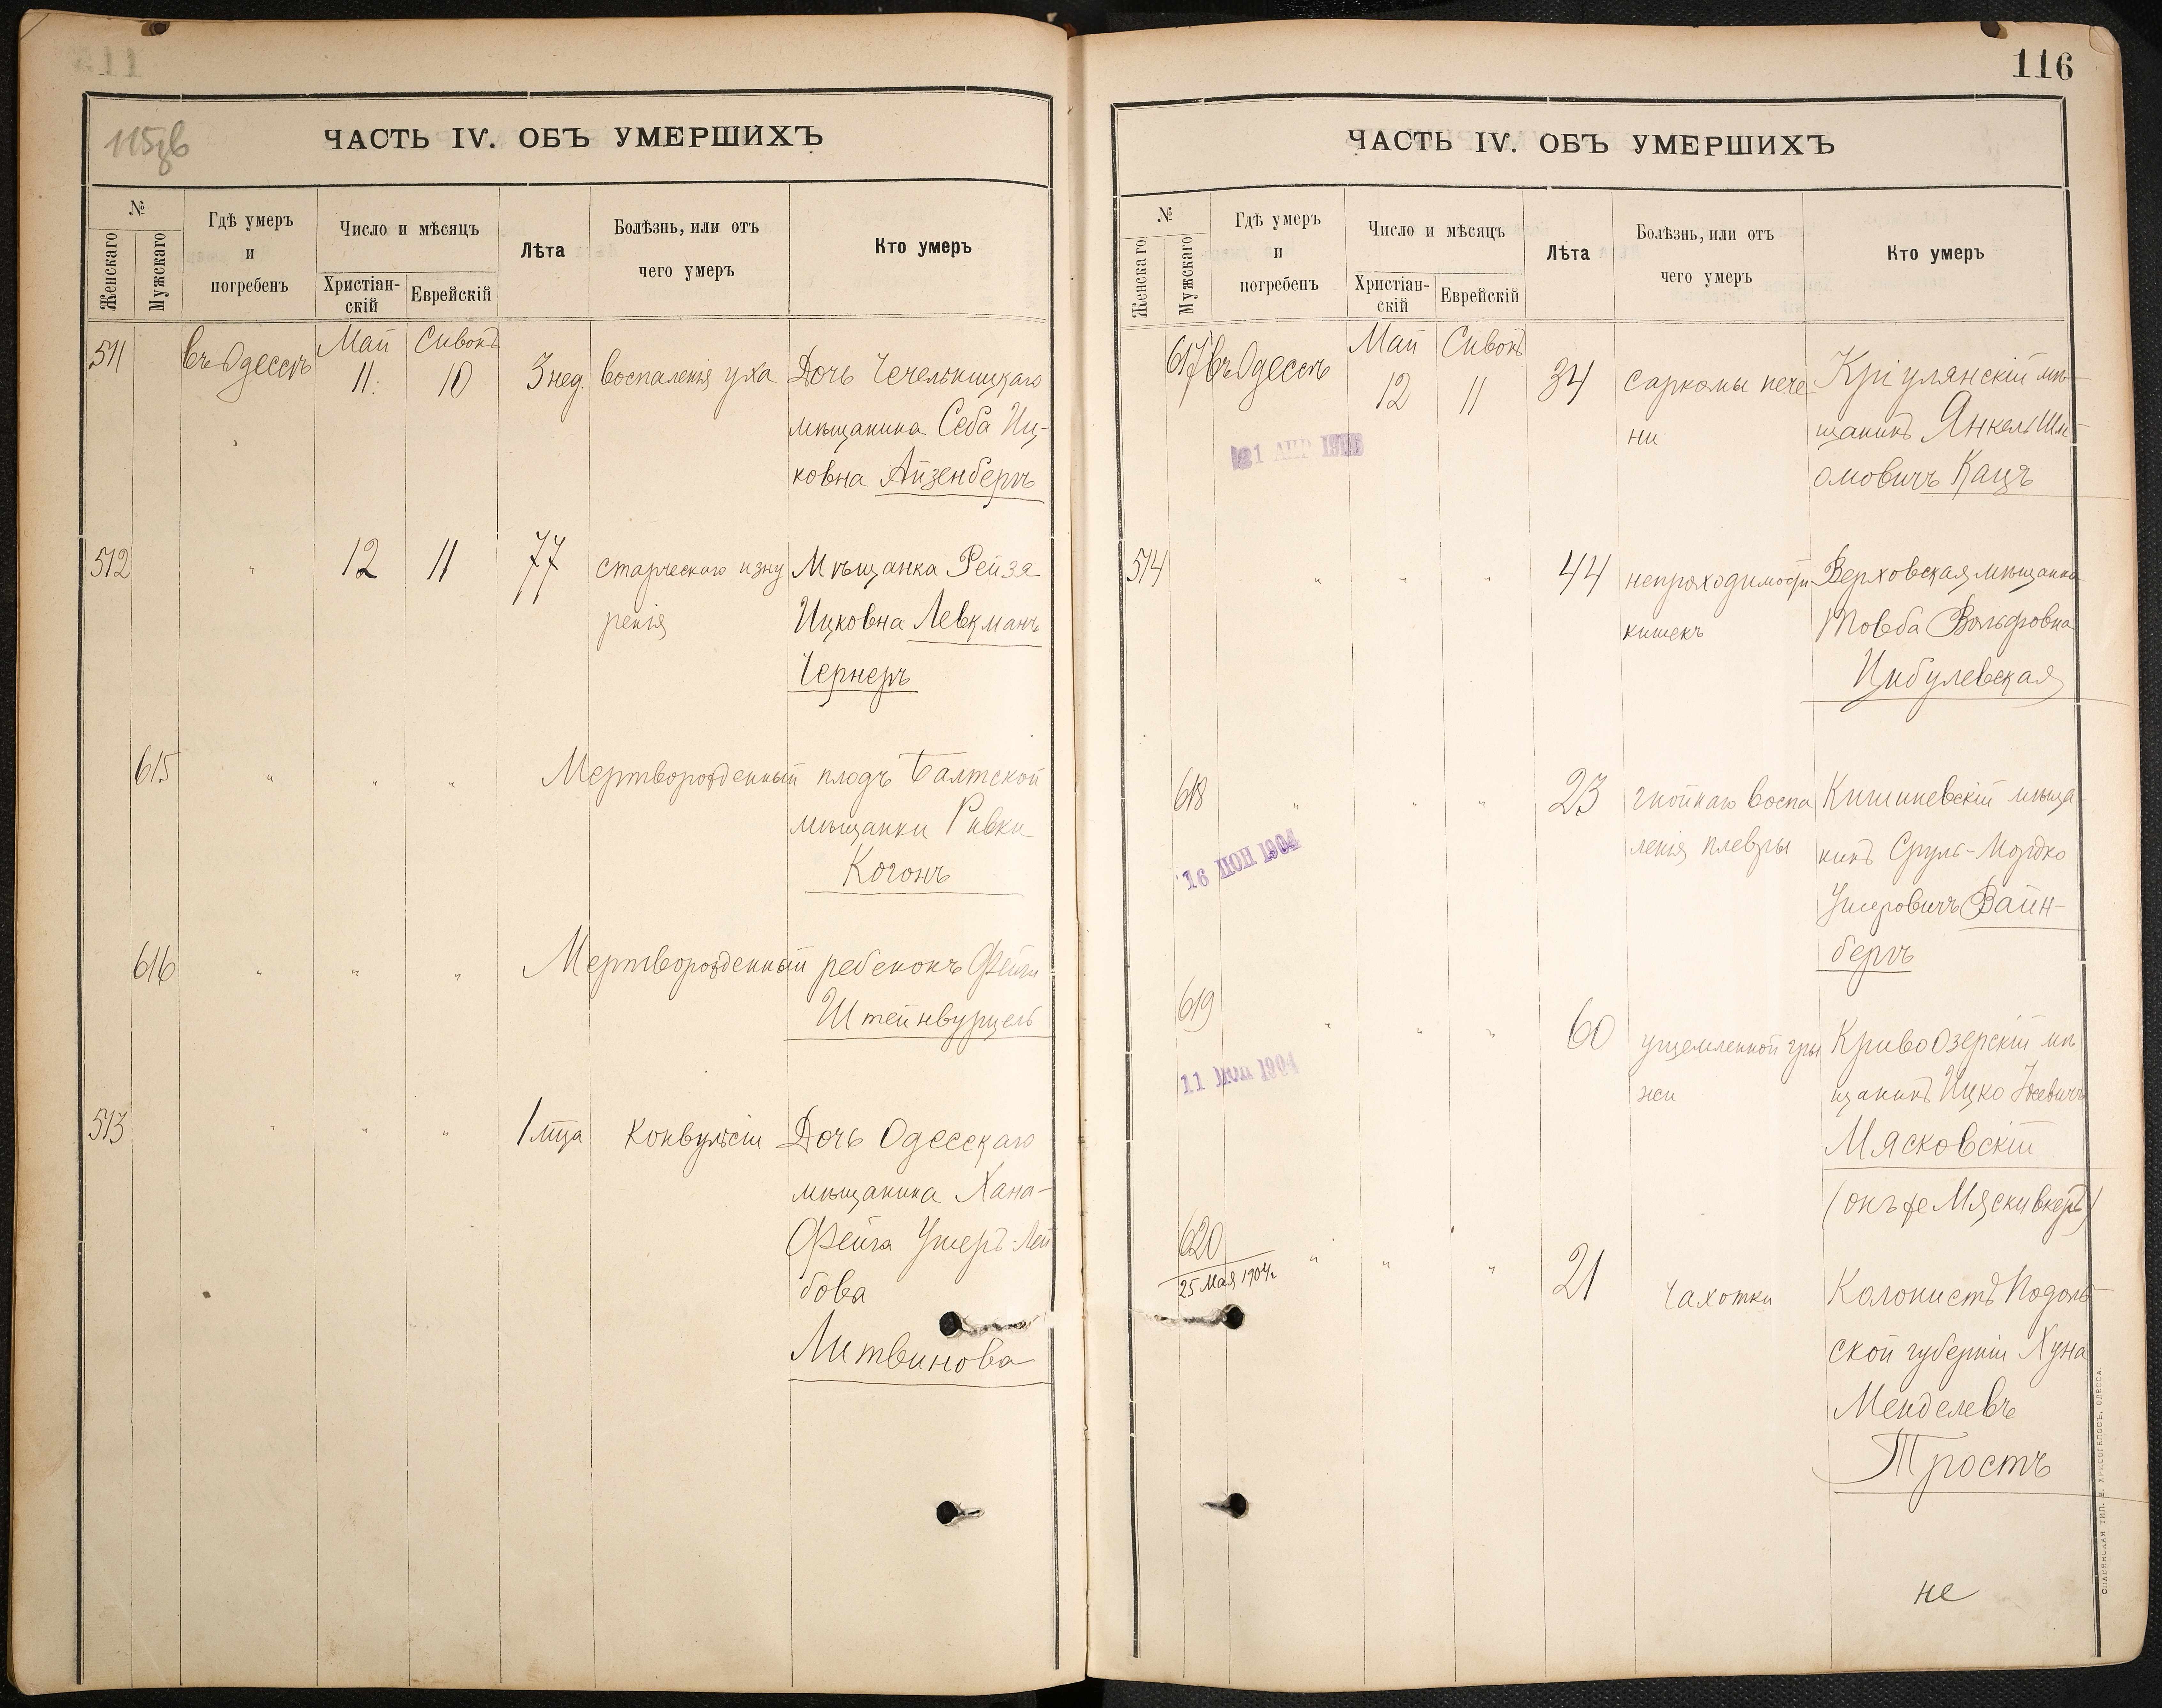 115об
ЧАСТЬ IV. ОБЪ УМЕРШИХЪ
№
Женскаго
Мужскаго
Гдѣ умеръ
и
погребенъ
Число и мѣсяцъ
Христіан-
скій
Еврейскій
Лѣта
Болѣзнь, или отъ
чего умеръ
Кто умеръ
511 въ Одессѣ Май 11. Сивонъ 10 3 нед. воспаленія уха Дочь Чечельницкаго
мѣщанина Себа Иц-
ковна Айзенбергъ
512 " 12 11 77 старческаго изну Мѣщанка Рейза
ренія Ицковна Левкманъ
Чернеръ
615 " " " Мертворожденный плодъ Балтской
мѣщанки Ривки
Когонъ
616 " " " Мертворожденный ребенокъ Фейги
Штейнвурцель
513 " " " 1 мца Конвульсіи Дочь Одесскаго
мѣщанина Хана-
Фейга Ушеръ-Лей
бова
Литвинова
116
ЧАСТЬ IV. ОБЪ УМЕРШИХЪ
№
Женскаго
Мужскаго
Гдѣ умеръ
и
погребенъ
Число и мѣсяцъ
Христіан-
скій
Еврейскій
Лѣта
Болѣзнь, или отъ
чего умеръ
Кто умеръ
617 въ Одессѣ Май 12 Сивонъ 11 34 саркомы пече Кріулянскій мѣ-
ни щанинъ Янкель Шл-
омовичъ Кацъ
21 АПР
514 " " " 44 непроходимости Верховская мѣщанка
кишекъ Товба Вольфовна
Цибулевская
618 " " " 23 гнойнаго воспа Кишиневскій мѣща-
ленія плевры нинъ Сруль-Мордко
16 ІЮН 1904
Ушеровичъ Вайн-
бергъ
619 " " " 60 ущемленной гры Кривоозерскій мѣ
жи щанинъ Ицко Іосевичъ
11 1904
Мясковскій
(онъ же Мяскивкеръ)
620 " " " 21 Чахотки Колонистъ Подоль-
25 Мая 1904г
ской губерніи Хуна
Менделевъ
Тростъ
не
СЛАВЯНСКАЯ ТИП. Е. ХРИСОГЕЛОСЪ, ОДЕССА.